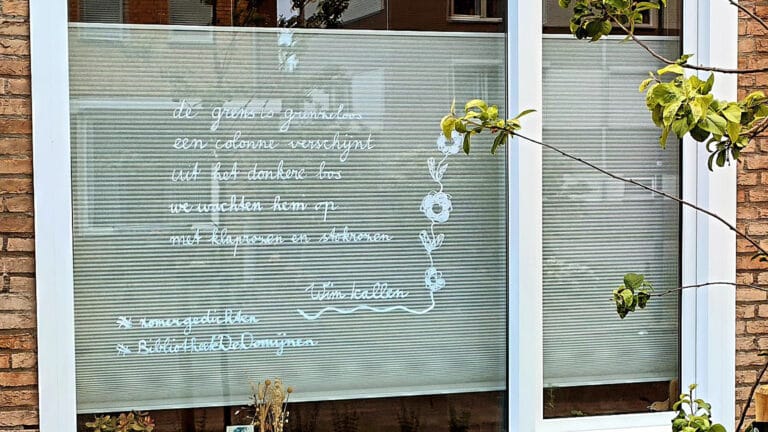 de grens is grenzeloos
een colonne verschijnt
uit het donkere bos
we wachten hem op
met klaprozen en stokrozen
Wim kallen
# zomergedichten
# BibliotheekDeDomijnen